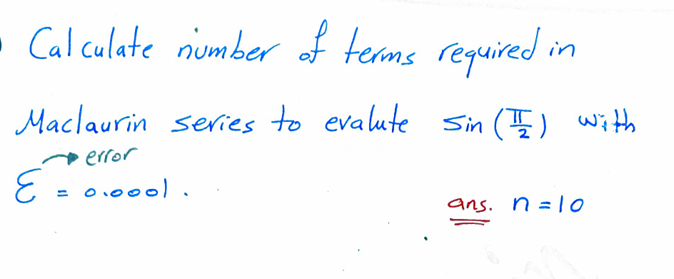 Calculate number of terms required in
Maclaurin series to evalute sin (π/2) with
→ error
ε = 0.0001.
ans. n = 10